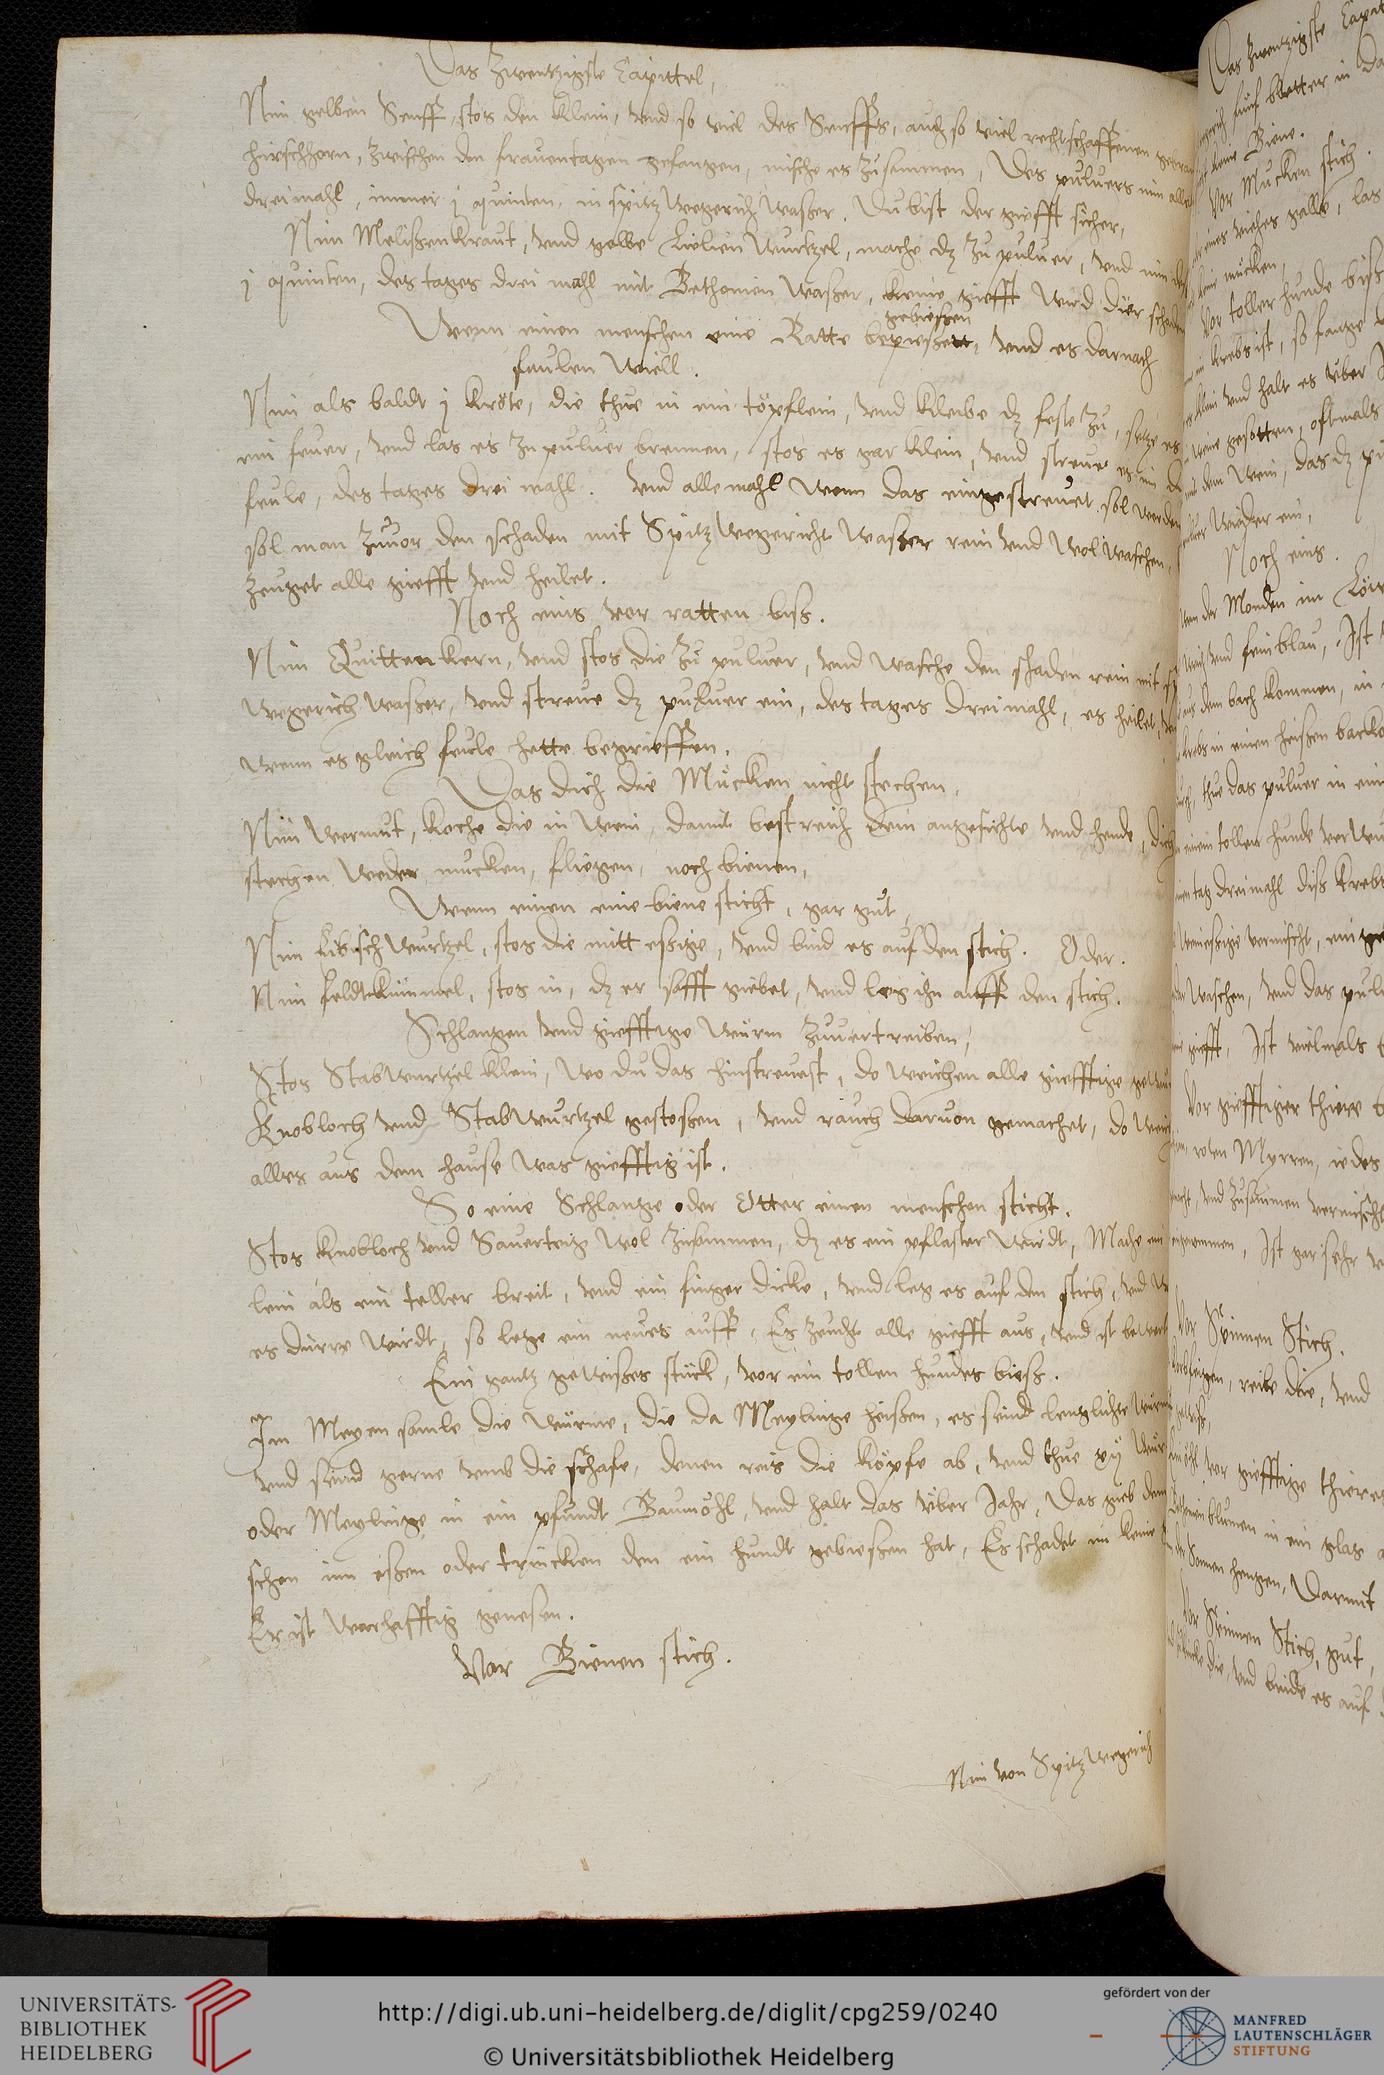 Das Zwentzigste Capittel,
Nim gelben Senff, stos den klein, vnd so viel des Senffs, auch so viel rechtschaffenen
hirschhorn, zwischen den frauentagen gefangen, mische es zusammen, des puluers nim alle
dreimahl, immer j quinten, in spitz wegerich waßer. Du bist der giefft sicher,
Nim Melißenkraut, vnd gelbe Lielien wurtzel, mache dz zu puluer, vnd nim
j quinten, des tages drei mahl mit Bethonien waßer, keine giefft wird dier schaden
gebießen
Wenn einen menschen eine Ratte bepießett, vnd es darnach
faulen wiell.
Nim als baldt j kröte, die thue in ein töpflein, vnd kleibe dz feste zu, setze es
ein feuer, vnd las es zu puluer brennen, stos es gar klein, vnd streue es in
feule, des tages drei mahl. Vnd allemahl wenn das eingestreuet sol werden
sol man zuuor den schaden mit Spitz wegericht waßer rein vnd wol waschen,
zeuget alle giefft vnd heilet.
Noch eins vor ratten biß.
Nim Quittenkern, vnd stos die zu puluer, vnd wasche den schaden rein mit
wegerich waßer, vnd streue dz puluer ein, des tages dreimahl, es heilet,
wenn es gleich feule hette begrieffen.
Das dich die Mucken nicht stechen,
Nim wermut, koche die in wein, damit bestreich dein angesichte vnd hende, dich
stechen weder mucken, fliegen, noch bienen,
Wenn einen eine biene sticht, gar gut,
Nim Eibisch wurtzel, stos die mitt eßige, vnd bind es auf den stich. Oder.
Nim feldtkümmel, stos in, dz er safft giebet, vnd leg ihn auff den stich.
Schlangen vnd giefftige würm zuuertreiben,
Stos Stabwurtzel klein, wo du das hinstreuest, do weichen alle giefftige
Knobloch vnd Stabwurtzel gestoßen, vnd rauch daruon gemachet, do
alles aus dem hause was giefftig ist.
So eine Schlange oder Otter einen menschen sticht.
Stos knobloch vnd Sauerteig wol zusammen, dz es ein pflaster wirdt, Mache ein
lein als ein teller breit, vnd ein finger dicke, vnd leg es auf den stich, vnd
es dürre wirdt, so lege ein neues auff, Es zeucht alle giefft aus, vnd ist bewert
Ein gantz gewißes stück, vor ein tollen hundes bieß.
Im Meyen samle die würme, die da Meylinge heißen, es seind lenglichte würm
vnd seind gerne vmb die schafe, denen reis die köpfe ab, vnd thue
oder Meylinge in ein pfundt Baumöhl, vnd halt das über Jahr, Das gieb dem
schen im eßen oder trincken den ein hundt gebießen hat, Es schadet im keine
Er ist warhafftig genesen.
Vor Bienen stich.
Nim von Spitzwegerich
Das zwentzigste
fünf bletter in
keine Biene.
Vor Mucken stich.
eines viehes galle, las
keine mucken,
Vor toller hunde biß
krebs ist, so fange
klein vnd halt es über
weine gesotten, oftmals
mit dem wein, das dz
wieder ein,
Noch eins.
Wenn der Monden im
vnd feinblau, Ist
aus dem bach kommen, in
krebs in einen heißen
thue das puluer in
einem tollen hunde
tag dreimahl diß
vermischt,
waschen, vnd das
giefft, Ist vielmals
Vor giefftiger thiere
roten Myrren, iedes
vnd zusammen vermischt
eingenommen, Ist gar sehr
Vor Spinnen Stich.
reibe die, vnd
vor giefftige thiere
blumen in ein glas
Sonnen hengen, Darmit
Vor Spinnen Stich, gut,
die, vnd binde es auf
UNIVERSITÄTS-
BIBLIOTHEK
HEIDELBERG
http://digi.ub.uni-heidelberg.de/diglit/cpg259/0240
© Universitätsbibliothek Heidelberg
gefördert von der
MANFRED
LAUTENSCHLÄGER
STIFTUNG